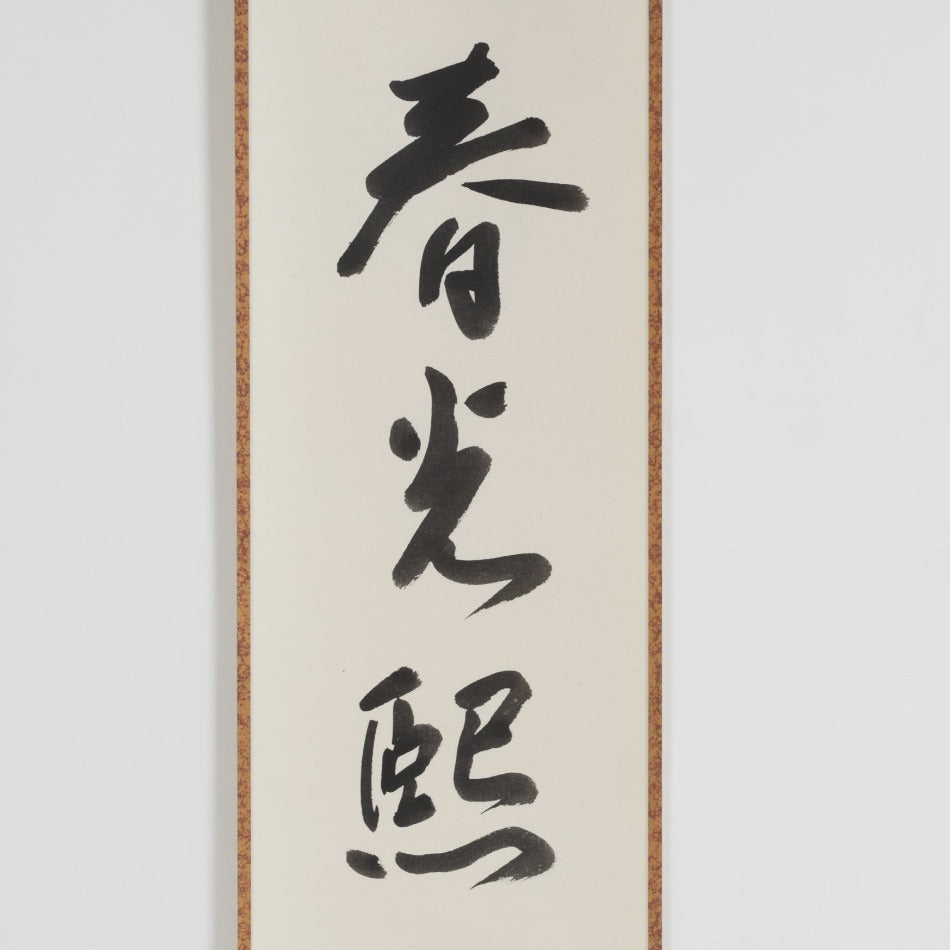 春光熙